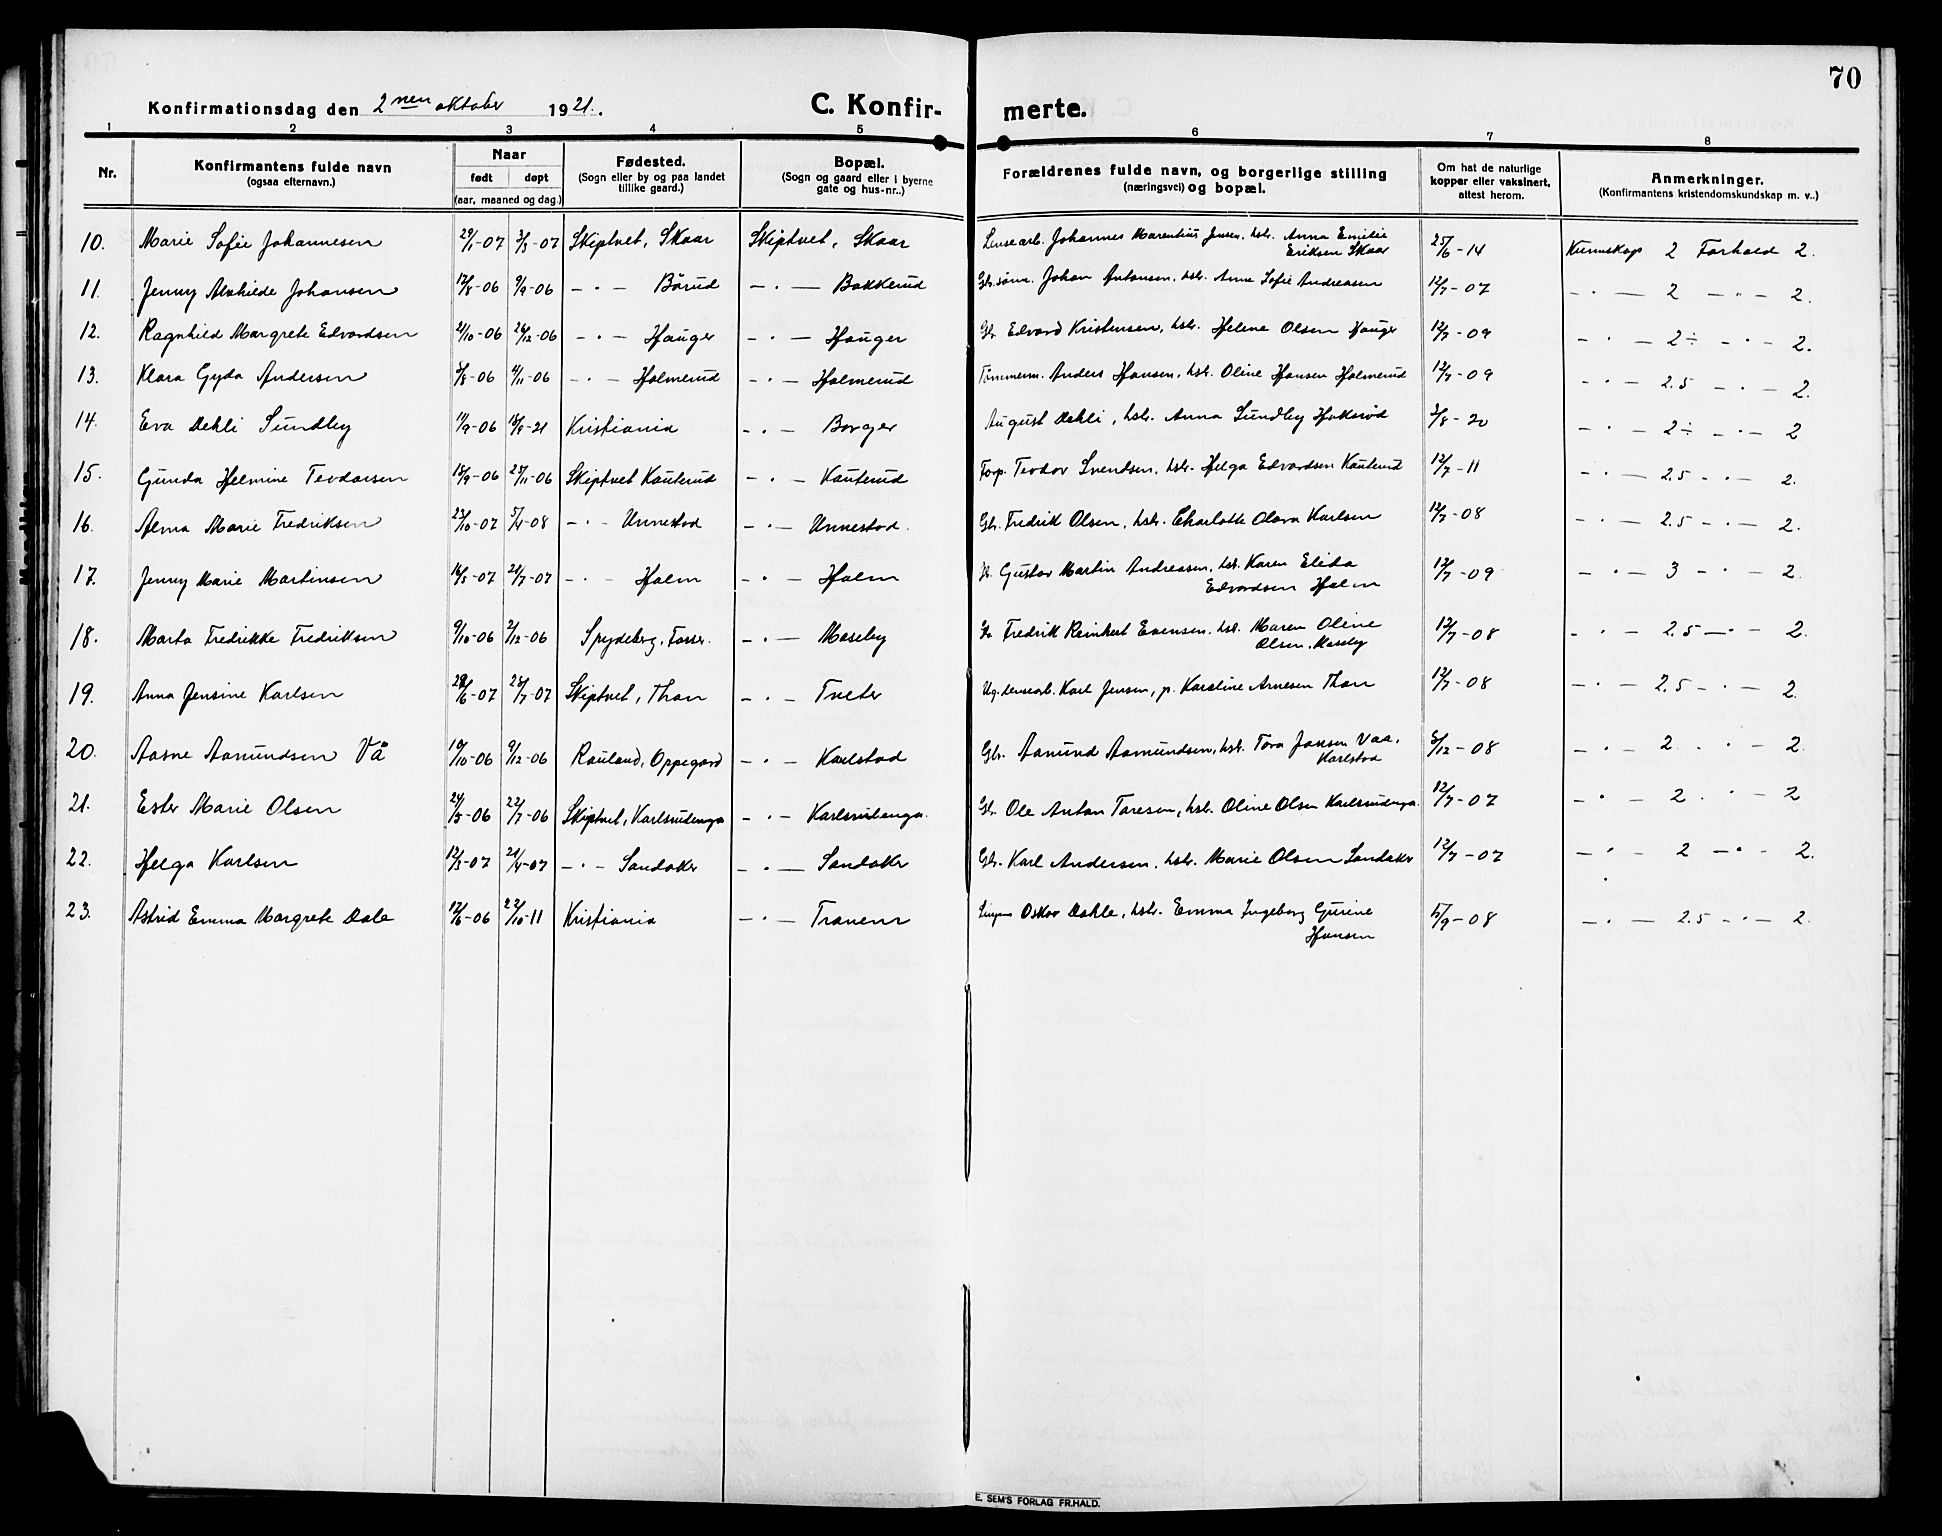 70
Konfirmationsdag den 2nen oktober 1921.
C. Konfir-
merte.
1 2 3 4 5 6 7 8
Nr.
Konfirmantens fulde navn
(ogsaa efternavn.)
Naar
født døpt
(aar, maaned og dag.)
Fødested.
(Sogn eller by og paa landet
tillike gaard.)
Bopæl.
(Sogn og gaard eller i byerne
gate og hus-nr.,)
Forældrenes fulde navn, og borgerlige stilling
(næringsvei) og bopæl.
Om hat de naturlige
kopper eller vaksinert,
attest herom.
Anmerkninger.
(Konfirmantens kristendomskundskap m. v..)
10. Marie Sofie Johannesen 29/1-07 3/3-07 Skiptvet, Skaar Skiptvet, Skaar Lensearb. Johannes Marentius Jensen, hst. Anna Emilie 25/6-14 Kunnskap 2 Forhold 2.
Eriksen Skaar
11. Jenny Alvhilde Johansen 17/8-06 9/9-06 - " - Börud - " - Bakkerud Johan Antonsen, hst. Anne Sofie Andreasen 12/7-07 - " - 2 - " - 2.
12. Ragnhild Margrete Edvardsen 21/10-06 26/12-06 - " - Hauger - " - Hauger Gbr. Edvard Kristensen, hst. Helene Olsen Hauger 12/7-09 - " - 2÷ - " - 2.
13. Klara Gyda Andersen 3/8-06 4/11-06 - " - Holmerud - " - Holmerud Tømmerm. Anders Hansen, hst. Oline Hansen Holmerud 12/7-09 - " - 2.5 - " - 2.
14. Eva Dehli Sundby 11/9-06 18/8-21 Kristiania - " - Borger August Dehli, hst. Anna Sundby 3/8-20 - " - 2÷ - " - 2
15. Gunda Helmine Teodorsen 15/9-06 25/11-06 Skiptvet Kauterud - " - Kauterud Forp. Teodor Svendsen, hst. Helga Edvardsen Kauterud 12/7-11 - " - 2.5 - " - 2.
16. Alma Marie Fredriksen 23/10-07 5/4-08 - " - Unnestad - " - Unnestad. Gbr. Fredrik Olsen, hst. Charlotte Olava Karlsen 12/7-08 - " - 2.5 - " - 2.
17. Jenny Marie Martinsen 16/5-07 21/7-07 - " - Holm - " - Holm Gustav Martin Andreasen, hst. Karen Elida 12/7-09 - " - 3 - " - 2.
Edvardsen Holm
18. Marta Fredrikke Fredriksen 9/10-06 2/12-06 Spydeberg, Fosser. - " - Moseby Fredrik Reinhert Evensen, hst. Maren Oline 12/7-08 - " - 2.5 - " - 2.
Olsen, Moseby
19. Anna Jensine Karlsen 28/6-07 28/7-07 Skiptvet, Thon - " - Tveter Ug. lensearb. Karl Jensen, p. Karoline Arnesen Thon 12/7-08 - " - 2.5 - " - 2.
20. Aasne Aamundsen Vå 19/10-06 9/12-06 Rauland, Oppegard - " - Karlstad Gbr. Aamund Aamundsen, hst. Tora Jonsen Vaa, 3/12-08 - " - 2 . " - 2.
Karlstad
21. Ester Marie Olsen 24/5-06 22/7-06 Skiptvet, Karlsrudenga - " - Karlsrudenga. Gbr. Ole Anton Toresen, hst. Oline Olsen Karlsrudenga. 12/7-07 - " - 2 . " - 2
22. Helga Karlsen 12/3-07 21/4-07 - " - Sandaker - " - Sandaker Gbr. Karl Andersen, hst. Marie Olsen Sandaker 12/7-07 - " - 2 - " - 2.
23. Astrid Emma Margrete Dale 12/6-06 22/10-11 Kristiania - " - Tranem Oskar Dahle, hst. Emma Ingeborg Gurine 5/9-08 - " - 2.5 - " - 2.
Hansen
E. SEM'S FORLAG FR.HALD.